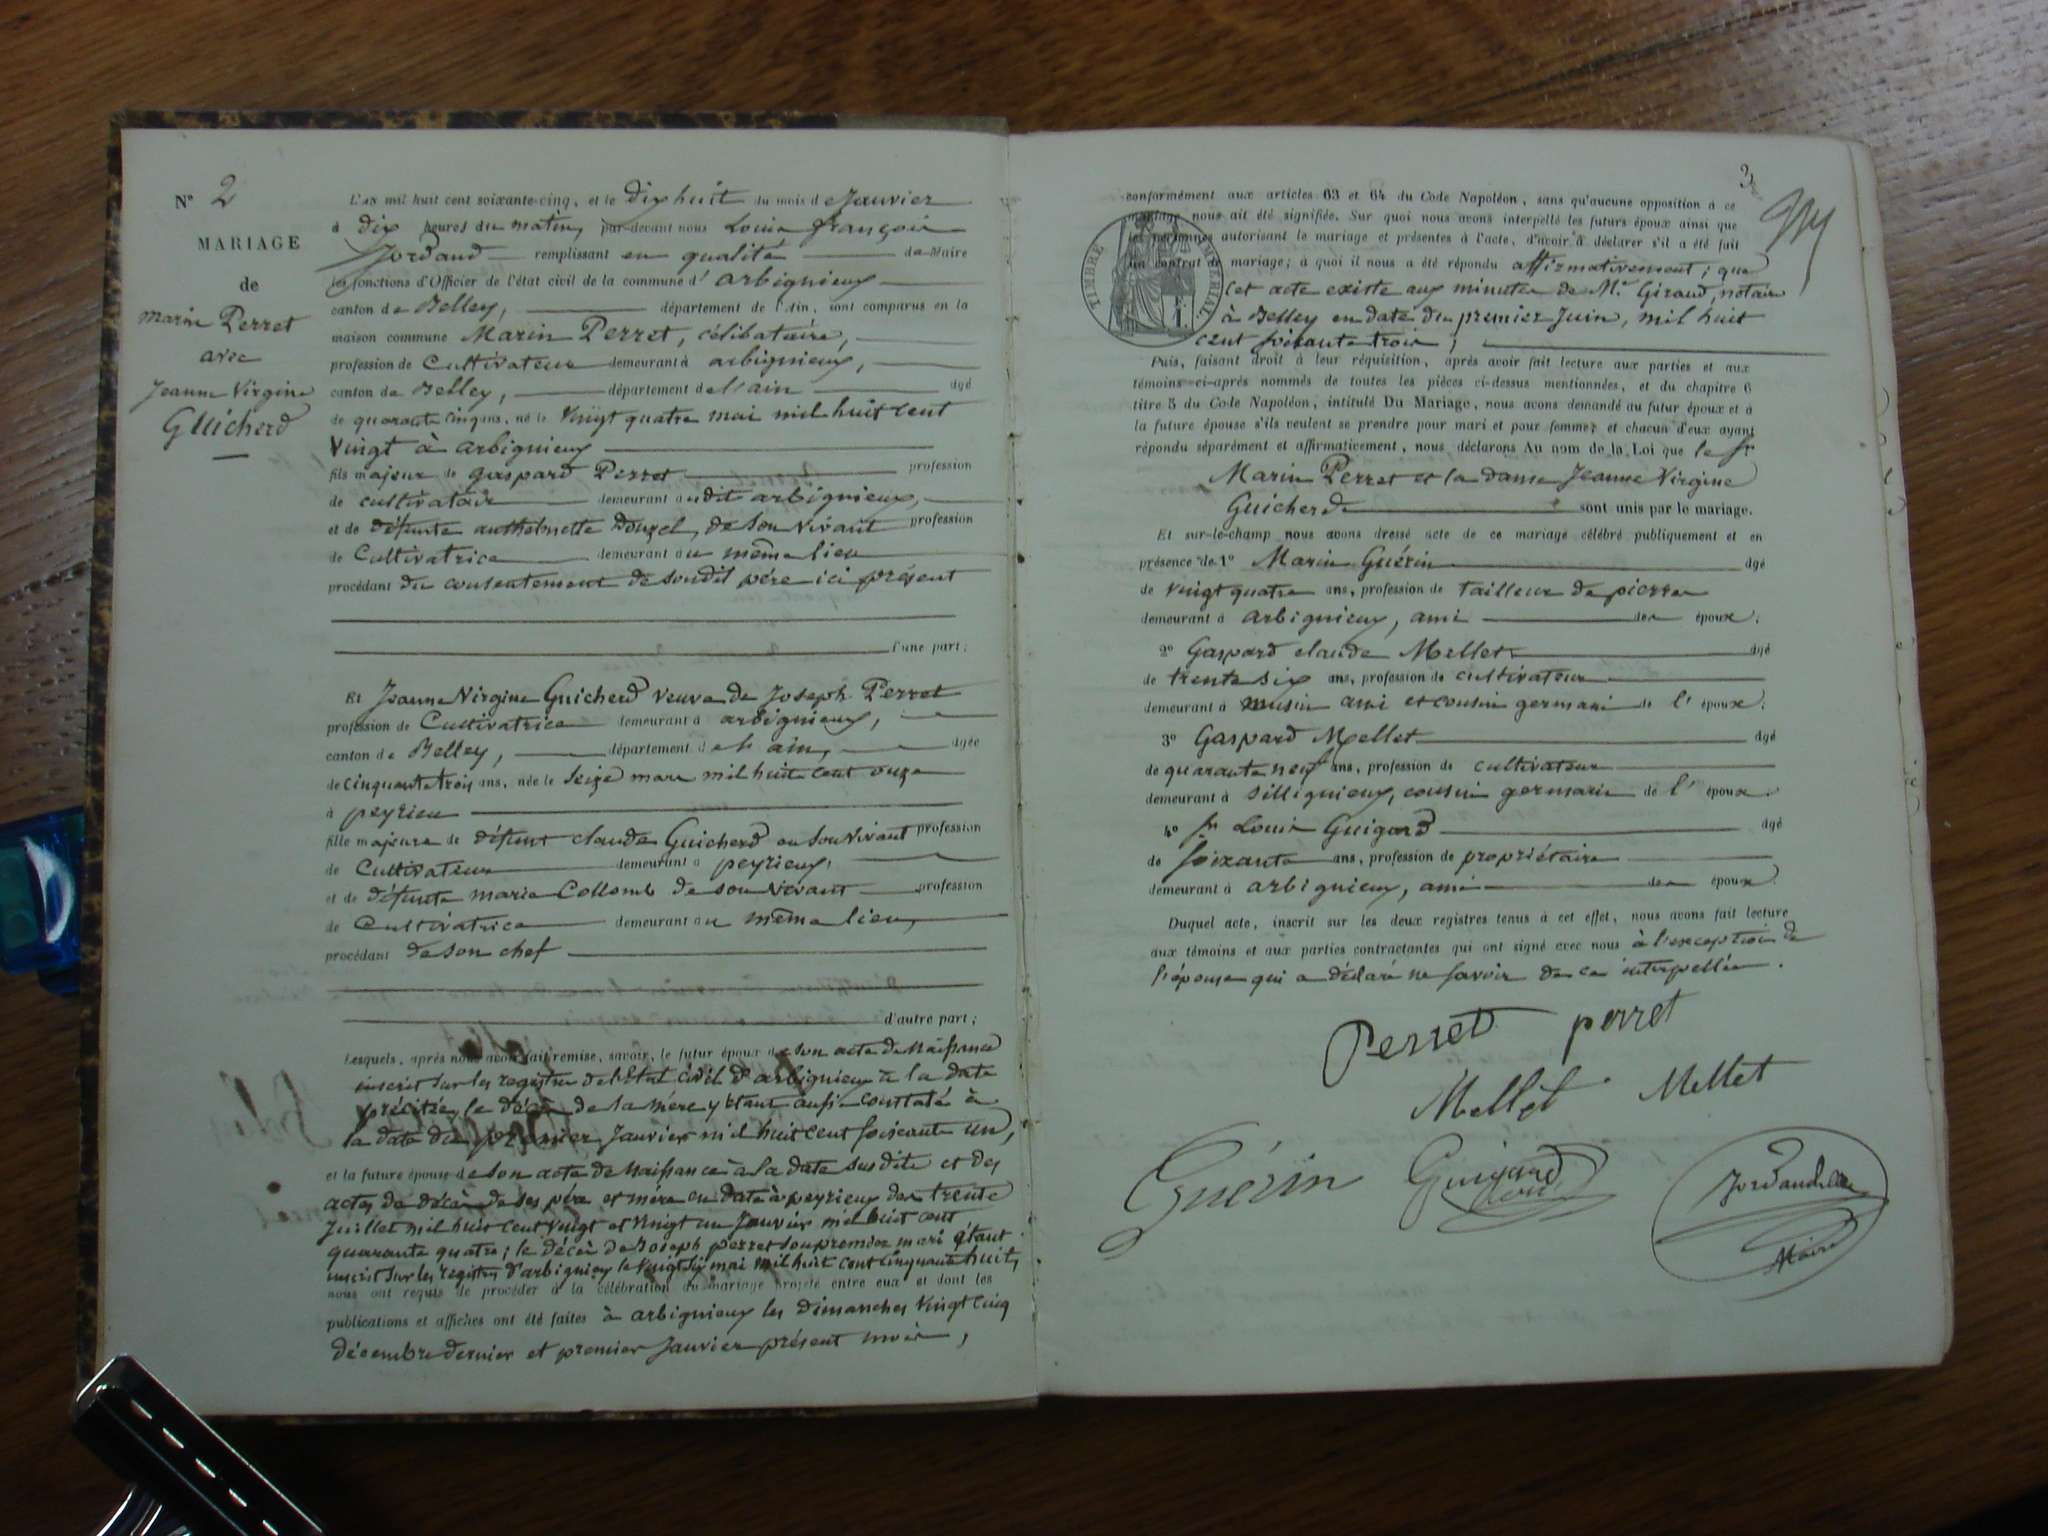 N° 2
MARIAGE
de
marin Perret
avec
Jeanne Virgine
Guicherd
L'an mil huit cent soixante-cinq, et le dix huit du mois de Janvier
à dix heures du matin, par-devant nous Louis françois
Jordand remplissant en qualité de Maire
les fonctions d'Officier de l'état civil de la commune d'arbignieux
canton de Belley, département de l'Ain, sont comparus en la
maison commune Marin Perret, célibataire,
profession de Cultivateur demeurant à arbignieux,
canton de Belley, département de l'ain âgé
de quarante cinq ans, né le Vingt quatre mai mil huit cent
Vingt à arbignieux
fils majeur de gaspard Perret profession
de cultivateur demeurant au dit arbignieux,
et de défunte anthelmette Douzel, de son vivant profession
de Cultivatrice demeurant au même lieu
procédant du consentement de sondit père ici présent
d'une part;
Et Jeanne Virgine Guicherd veuve de Joseph Perret
profession de Cultivatrice demeurant à arbignieux,
canton de Belley, département de l'ain, âgée
de cinquante trois ans, née le Seize mars mil huit cent onze
à peyrieu
fille majeure de défunt claude Guicherd en son vivant profession
de Cultivateur demeurant à peyrieux,
et de défunte marie Collomb de son vivant profession
de Cultivatrice demeurant au même lieu,
procédant de son chef
d'autre part;
Lesquels, après nous avoir fait remise, savoir, le futur époux de son acte de Naissance
inscrit sur les registres de l'Etat civil d'arbignieux à la date
précitée, le décès de sa mère y étant aussi constaté à
la date du premier Janvier mil huit cent soixante un,
et la future épouse de son acte de Naissance à la date susdite et des
actes de décès de ses père et mère en date à peyrieux des trente
Juillet mil huit cent vingt et vingt un Janvier mil huit cent
quarante quatre; le décès de Joseph perret son premier mari étant
inscrit sur les registres d'arbignieux le vingt six mai mil huit cent cinquante huit,
nous ont requis de procéder à la célébration du mariage projeté entre eux et dont les
publications et affiches ont été faites à arbignieux les dimanches vingt cinq
décembre dernier et premier Janvier présent mois,
3
conformément aux articles 63 et 64 du Code Napoléon, sans qu'aucune opposition à ce
mariage nous ait été signifiée. Sur quoi nous avons interpellé les futurs époux ainsi que
les personnes autorisant le mariage et présentes à l'acte, d'avoir à déclarer s'il a été fait
un contrat de mariage; à quoi il nous a été répondu affirmativement; que
cet acte existe aux minutes de Me Giraud, notaire
à Belley en date du premier Juin, mil huit
cent soixante trois;
TIMBRE IMPERIAL
Puis, faisant droit à leur réquisition, après avoir fait lecture aux parties et aux
témoins ci-après nommés de toutes les pièces ci-dessus mentionnées, et du chapitre 6
titre 5 du Code Napoléon, intitulé Du Mariage, nous avons demandé au futur époux et à
la future épouse s'ils veulent se prendre pour mari et pour femme; et chacun d'eux ayant
répondu séparément et affirmativement, nous déclarons Au nom de la Loi que le Sr
Marin Perret et la dame Jeanne Virgine
Guicherd sont unis par le mariage.
Et sur-le-champ nous avons dressé acte de ce mariage célébré publiquement et en
présence de 1° Marin Guérin âgé
de vingt quatre ans, profession de tailleur de pierre
demeurant à arbignieux, ami des époux.
2° Gaspard claude Mellet âgé
de trente six ans, profession de cultivateur
demeurant à musin ami et cousin germain de l'époux.
3° Gaspard Mellet âgé
de quarante neuf ans, profession de cultivateur
demeurant à Sillignieux, cousin germain de l'époux.
4° Sr Louis Guigard âgé
de soixante ans, profession de propriétaire
demeurant à arbignieux, ami des époux.
Duquel acte, inscrit sur les deux registres tenus à cet effet, nous avons fait lecture
aux témoins et aux parties contractantes qui ont signé avec nous à l'exception de
l'épouse qui a déclaré ne savoir de ce interpellée.
Perret perret
Mellet Mellet
Guérin Guigard Jordand
Maire